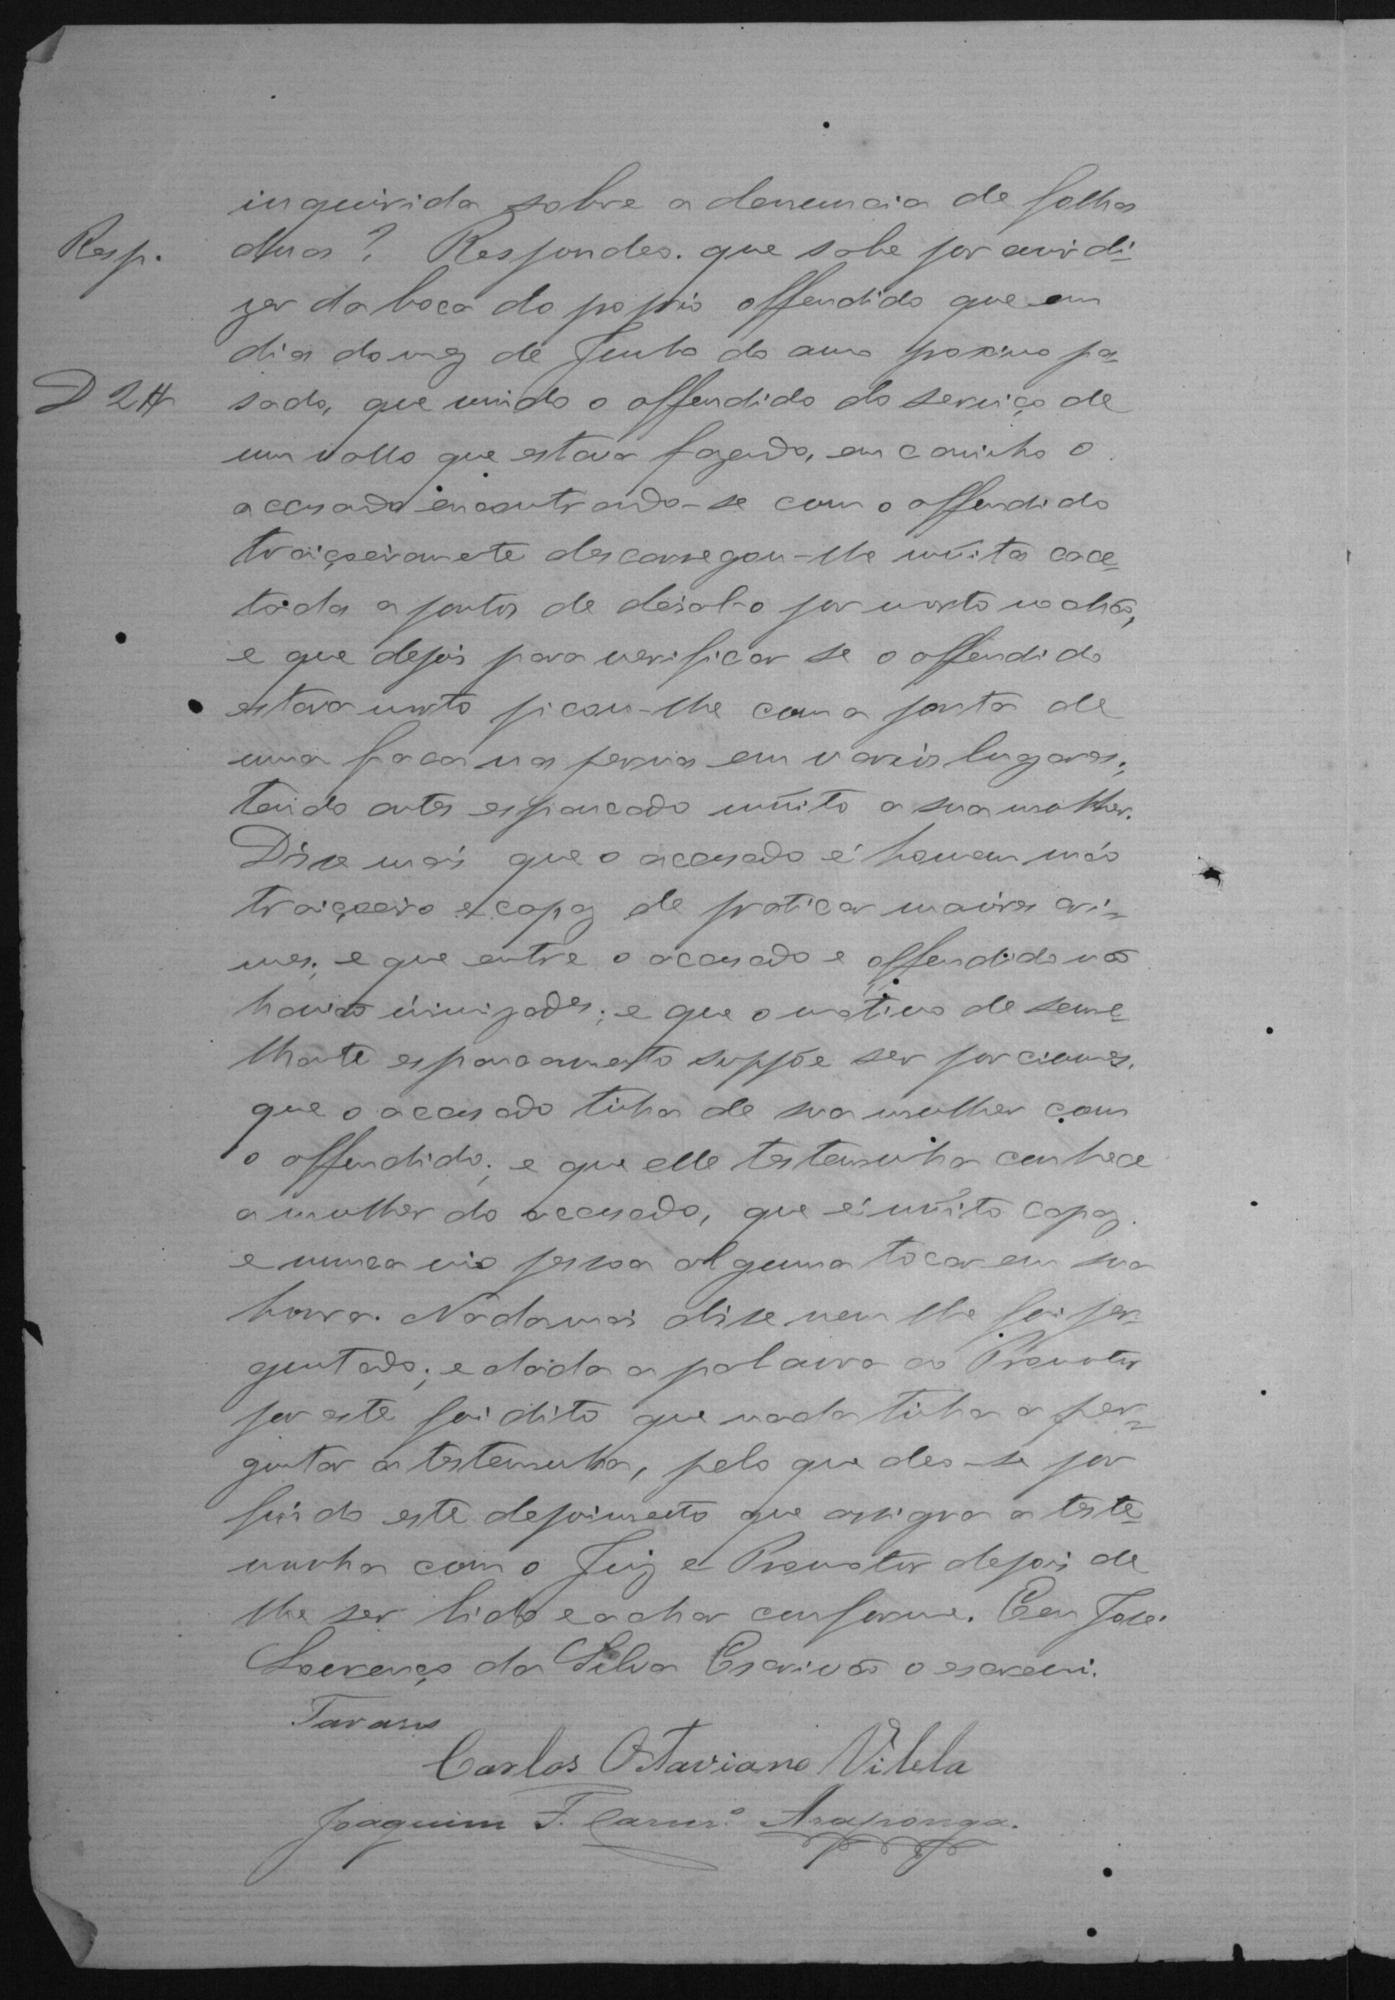 inquirida sobre a denuncia de folhas
Resp. duas? Respondeo. que sabe por ouvir di-
zer da boca do propio offendido que em
dias do mez de Junho do anno proximo pa-
D 2H sado, que vindo o offendido do serviço de
um vallo que estava fazendo, em caminho o
accusado encontrando-se com o offendido
traiçoeiramente descarregou-lhe muita cace-
tadas a pontos de deixal-o por morto no chão,
e que depois para verificar se o offendido
estava morto picou-lhe com a ponta de
uma faca nas pernas em vareis lugares;
tendo antes espancado muito a sua molher.
Disse mais que o accusado é homem máo
traiçoeiro e capaz de praticar maiores cri-
mes; e que entre o accusado e offendido não
havia inimizades; e que o motivo de seme-
lhante espancamento suppõe ser por ciumes.
que o accusado tinha de sua mulher com
o offendido; e que elle testemunha conhece
a mulher do accusado, que é muito capaz
e nunca vio pessoa alguma tocar em sua
honra. Nada mais disse nem lhe foi per-
guntado; e dada a palavra ao Promotor
por este foi dito que nada tinha a per-
guntar a testemunha, pelo que deo-se por
findo este depoimento que assigna a teste-
munha com o Juiz e Promotor depois de
lhe ser lido e achar conforme. Eeu José
Lourenço da Silva Escrivão o escrevi.
Tavares
Carlos Octaviano Vilela
Joaquim F. Carnr.º Araponga.